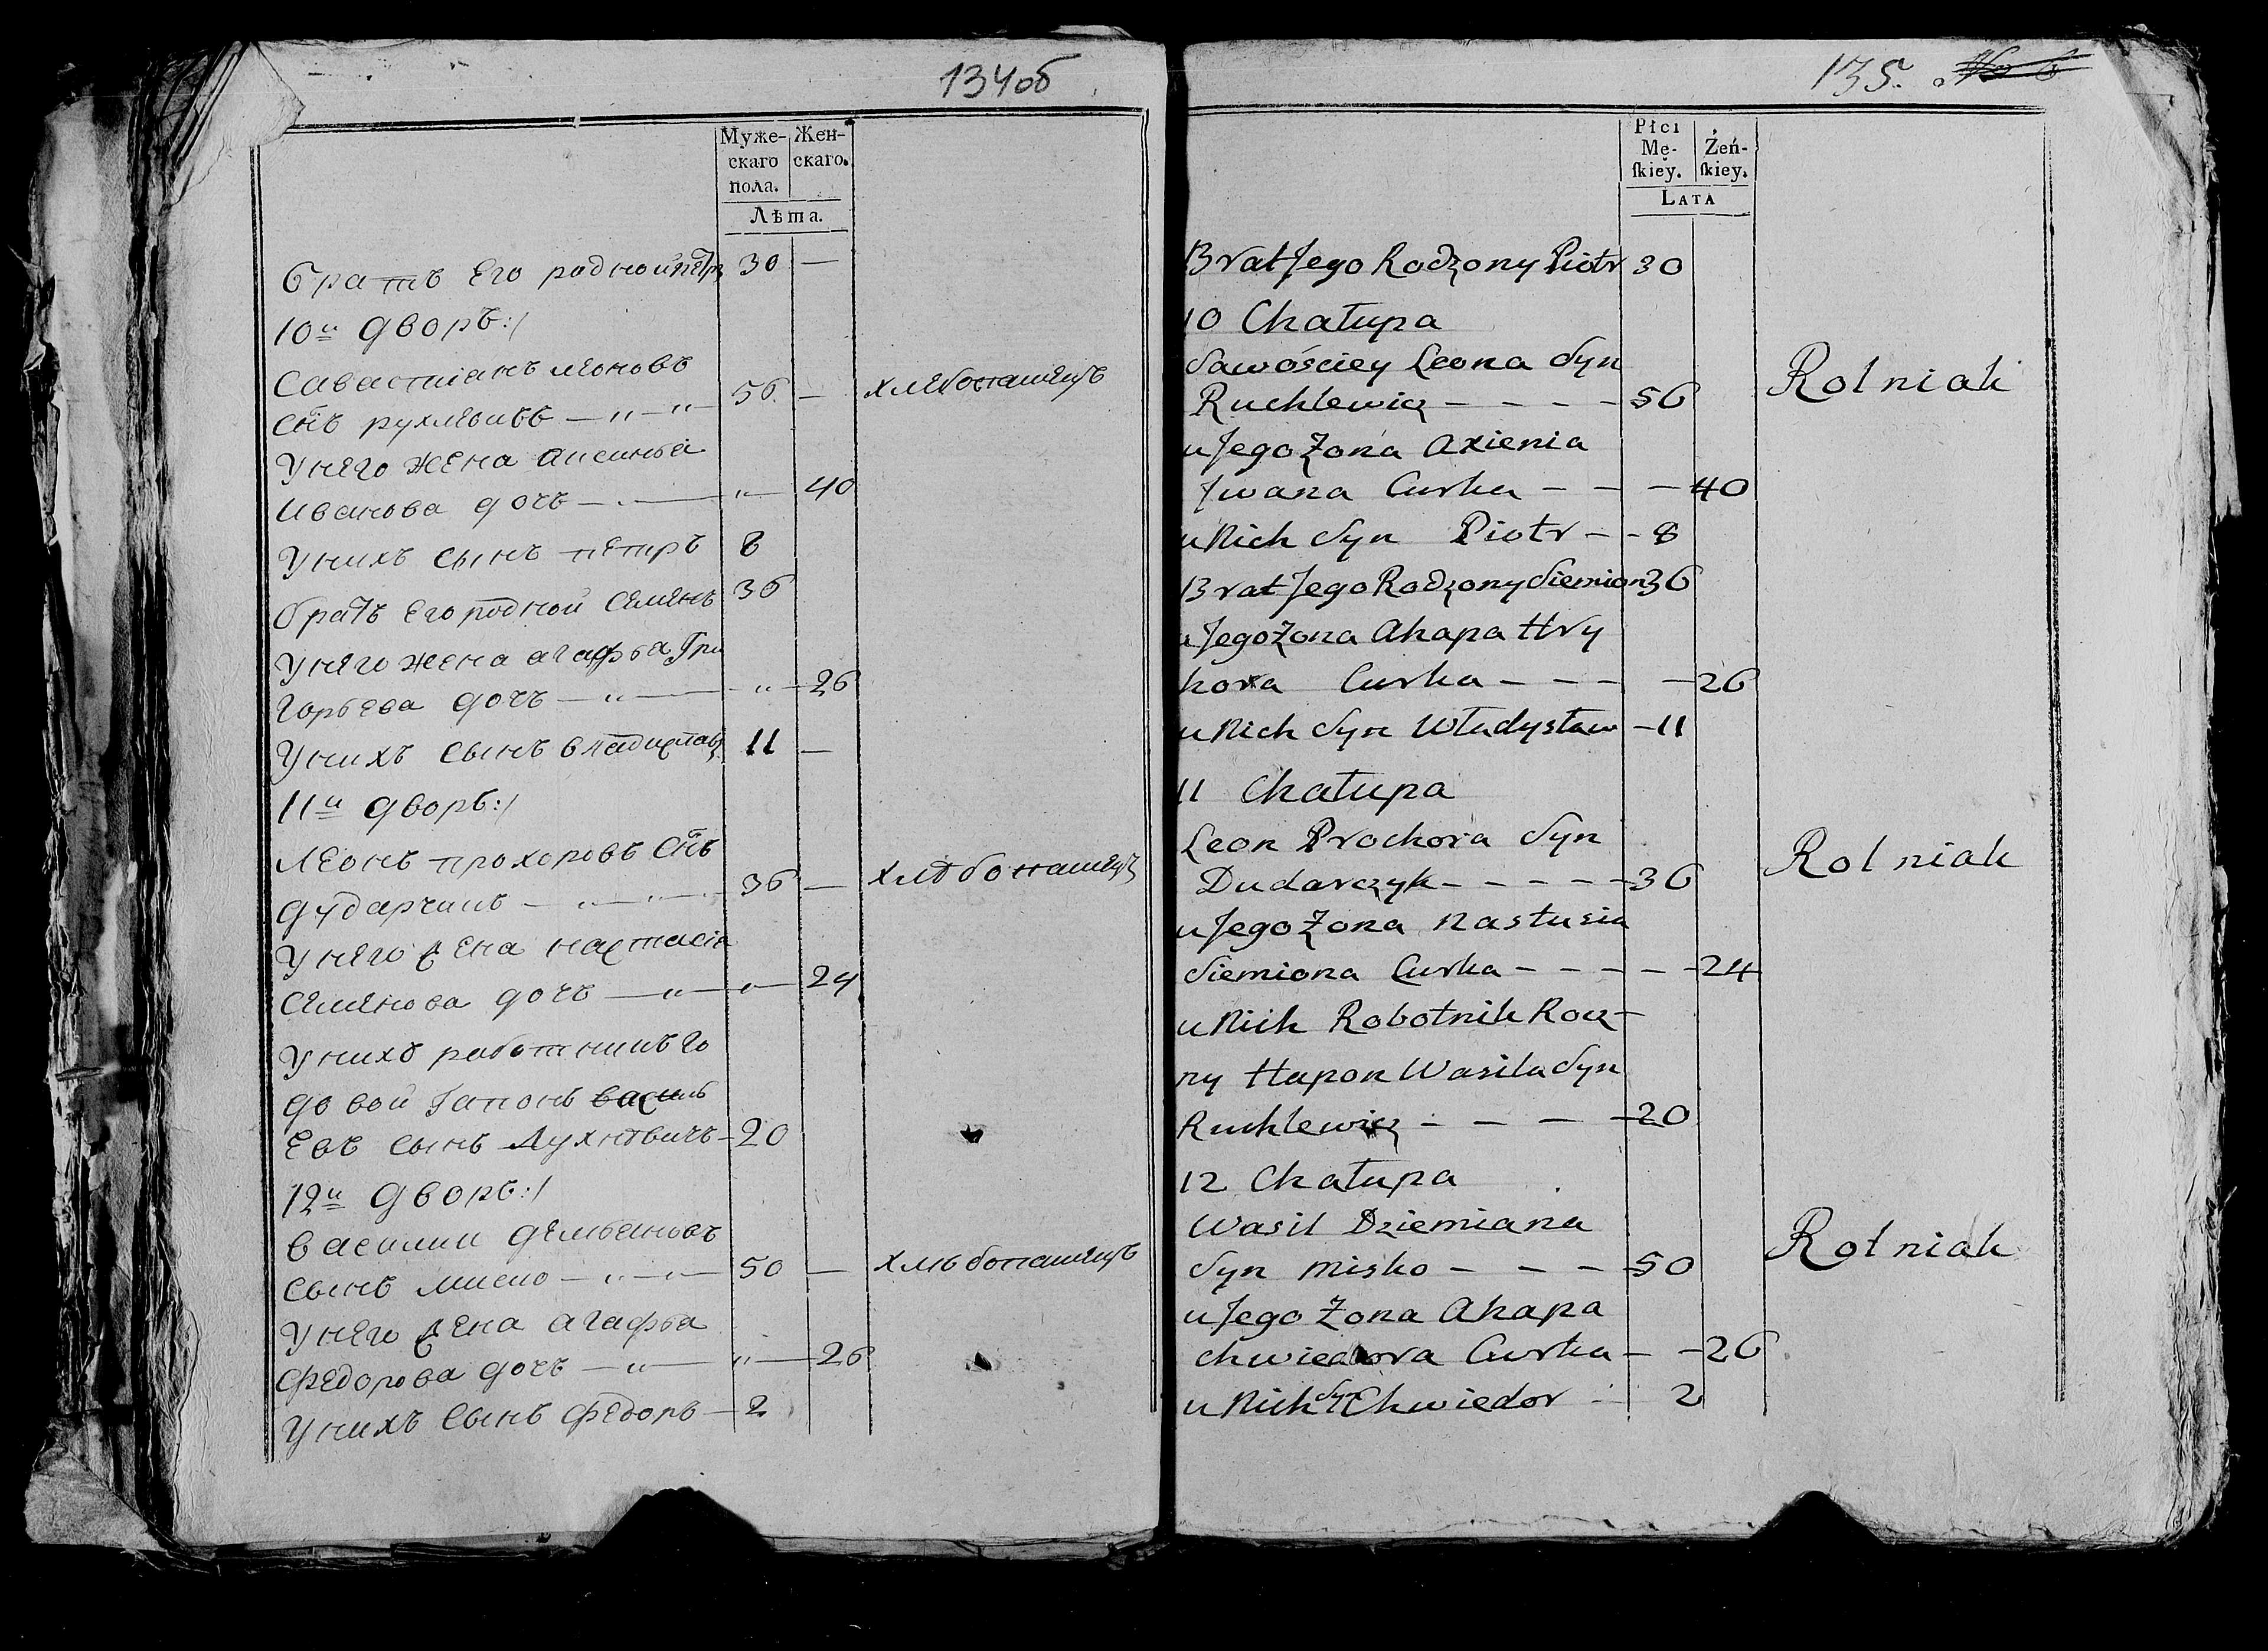 134об
Муже-
скаго
пола.
Жен-
скаго.
Лѣта.
братъ его родной пётръ 30 —
10й дворъ:/
Савастиянъ леоновъ
Снъ рухлевичъ — " — " 56 — хлебопашецъ
У него жена аксинья
Иванова дочь — " — 40
У нихъ сынъ петръ 8
братъ его родной Семенъ 36
У него жена агафья Гри
горьева дочь — " — " — 26
У нихъ сынъ владиславъ 11 —
11й дворъ:/
Леонъ прохоровъ Снъ
дударчикъ — " — " 36 — хлѣбопашецъ
У него жена настасія
Семенова дочь — " — " — 24
У нихъ работникъ го
довой гапонъ василь
евъ сынъ 20
12й дворъ:/
василии демьяновъ
сынъ миско — " — " 50 — хлѣбопашецъ
У него жена агафья
Федорова дочь — " — " — 26
У нихъ сынъ федоръ — 2
135. No 6
Płci
Mę-
skiey.
Żeń-
skiey.
Lata
Brat Jego Rodzony Piotr 30
10 Chałupa
Sawościey Leona Syn
Ruchlewicz - - - - 56 Rolniak
u Jego Zona Axienia
Jwana Curka - - - 40
u Nich Syn Piotr - - 8
Brat Jego Rodzony Siemion 36
u Jego Zona Ahapa Hry
hora Curka - - - - 26
u Nich Syn Władysław - 11
11 Chałupa
Leon Prochora Syn
Dudarczyk - - - - - 36 Rolniak
u Jego Zona Nastusia
Siemiona Curka - - - - - 24
u Nich Robotnik Rocz-
ny Hapon Wasila Syn
Ruchlewicz - - - - 20
12 Chałupa
Wasil Dziemiana
Syn Misko - - - - 50 Rolniak
u Jego Zona Ahapa
Chwiedora Curka - - 26
u Nich Syn Chwiedor - 2